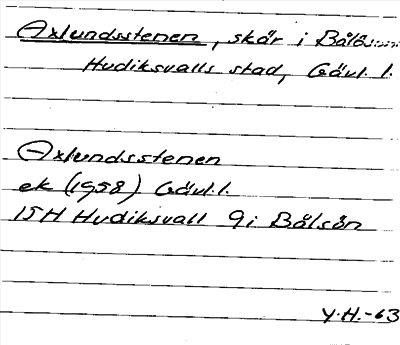 Axlundsstenen, skär i Bålsön
Hudiksvalls stad, Gävl. l.
Axlundsstenen
ek (1958) Gävl. l.
15H Hudiksvall 9i Bålsön
Y.H.-63